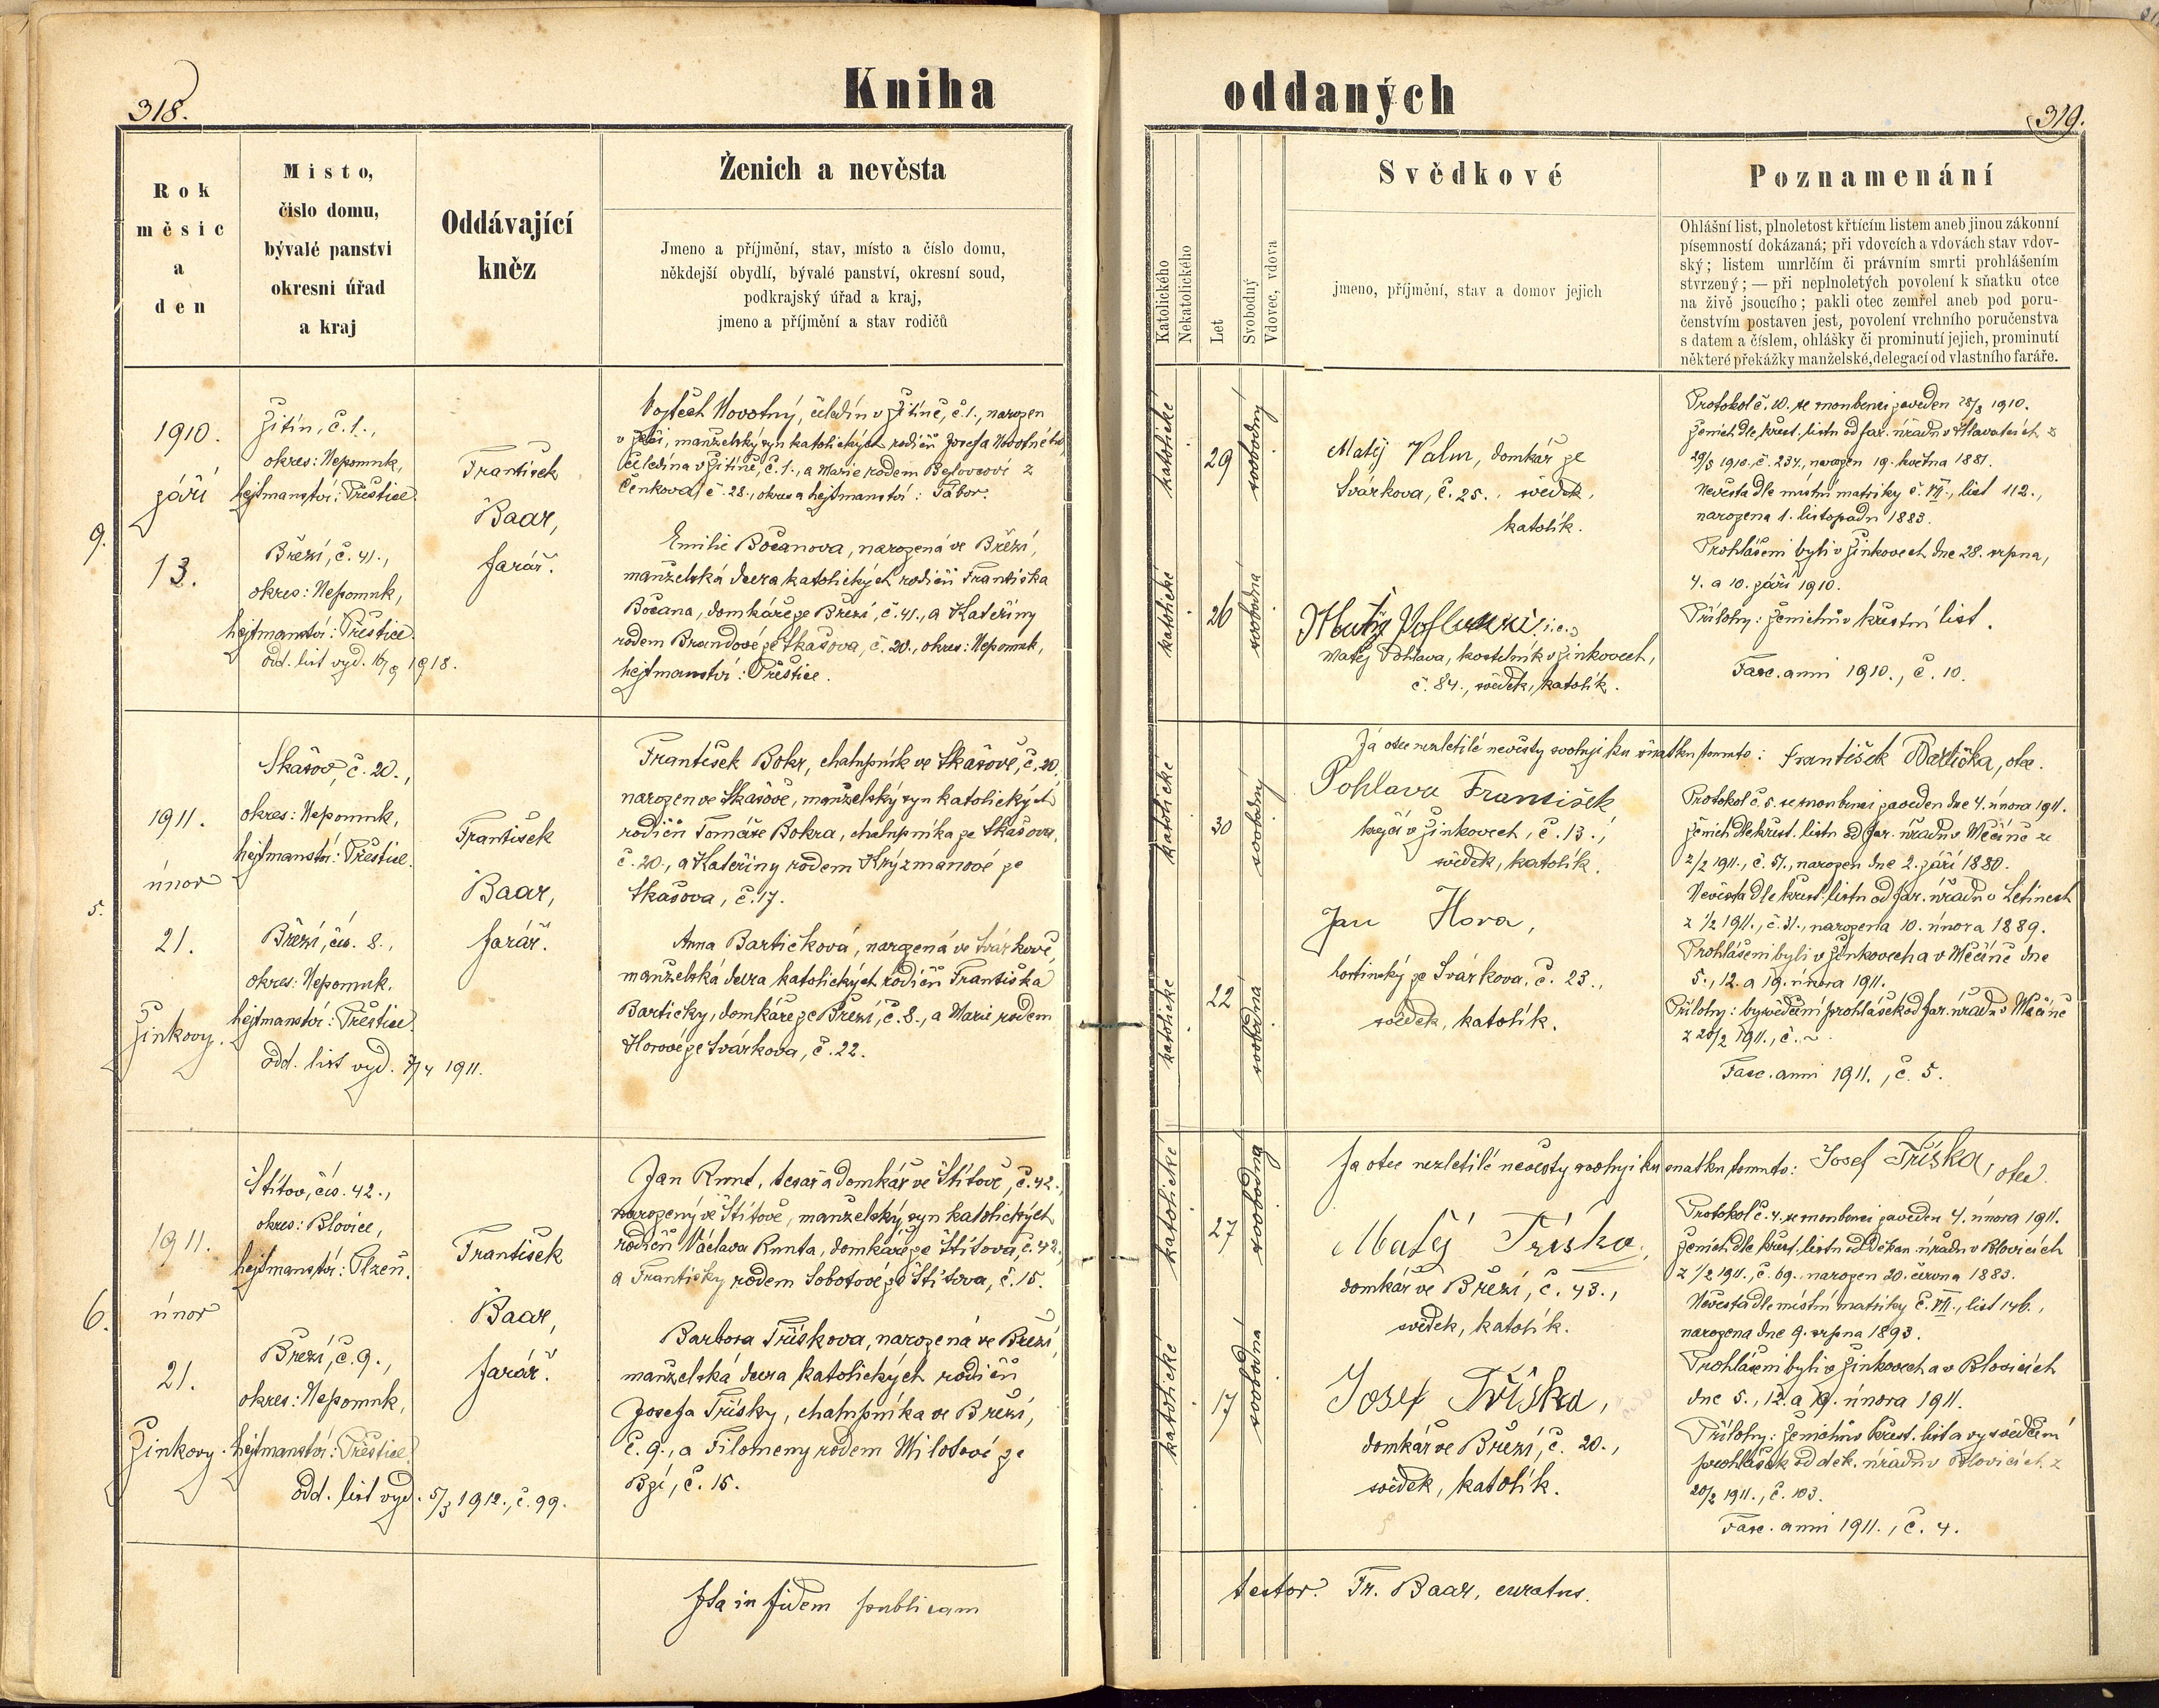 318.
Kniha
oddaných
319.
Rok
měsíc
a
den
Místo,
číslo domu,
bývalé panství
okresní úřad
a kraj
Oddávající
kněz
Ženich a nevěsta
Jmeno a příjmění, stav, místo a číslo domu,
někdejší obydlí, bývalé panství, okresní soud,
podkrajský úřad a kraj,
jmeno a příjmění a stav rodičů
Katolického
Nekatolického
Let
Svobodný
Vdovec, vdova
Svědkové
jmeno, příjmění, stav a domov jejich
Poznamenání
Ohlášní list, plnoletost křtícím listem aneb jinou zákonní
písemností dokázaná; při vdovcích a vdovách stav vdov-
ský; listem umrlčím či právním smrti prohlášením
stvrzený; — při neplnoletých povolení k sňatku otce
na živě jsoucího; pakli otec zemřel aneb pod poru-
čenstvím postaven jest, povolení vrchního poručenstva
s datem a číslem, ohlášky či prominutí jejich, prominutí
některé překážky manželské, delegací od vlastního faráře.
9.
1910.
září
13.
Žitín, č. 1.,
okres: Nepomuk,
hejtmanství: Přeštice.
Březí, č. 41.,
okres: Nepomuk,
hejtmanství: Přeštice.
odd. list vyd. 1918.
František
Baar,
farář.
Vojtěch Novotný, čeledín v Žitíně, č. 1., narozen
manželský syn katolických rodičů Josefa Novotného,
čeledína v Žitíně, č. 1., a Marie rodem z
Čenkova, č. 28., okres a hejtmanství: Tábor.
Emilie Bočanova, narozená ve Březí,
manželská dcera katolických rodičů Františka
Bočana, domkáře ze Březí, č. 41., a Kateřiny
rodem Brandové ze Skašova, č. 20., okres: Nepomuk,
hejtmanství: Přeštice.
katolické
29
svobodný
katolické
26
svobodná
Matěj Valm, domkář ze
Svárkova, č. 25., svědek,
katolík.
i.e.,
Matěj Pohlava, kostelník v Žinkovech,
č. 84., svědek, katolík.
Protokol č. 10. se snoubenci zaveden 28/8 1910.
Ženich dle křest. listu od far. úřadu v Hlavatcích z
29/8 1910., č. 234., narozen 19. května 1881.
Nevěsta dle místní matriky č. VII., list 112.,
narozena 1. listopadu 1883.
Prohlášeni byli v Žinkovech dne 28. srpna,
4. a 10. září 1910.
Přílohy: ženichův křestní list.
Fasc. anni 1910., č. 10.
5.
1911.
únor
21.
Žinkovy.
Skašov, č. 20.,
okres: Nepomuk,
hejtmanství: Přeštice.
Březí, čís. 8.,
okres: Nepomuk,
hejtmanství: Přeštice.
odd. list vyd. 7/4 1911.
František
Baar,
farář.
František Bokr, chalupník ve Skašově, č. 20.,
narozen ve Skašově, manželský syn katolických
rodičů Tomáše Bokra, chalupníka ze Skašova,
č. 20., a Kateřiny rodem Krýzmanové ze
Skašova, č. 17.
Anna Bartičková, narozená ve Svárkově,
manželská dcera katolických rodičů Františka
Bartičky, domkáře ze Březí, č. 8., a Marie rodem
Horové ze Svárkova, č. 22.
katolické
30
svobodný
katolické
22
svobodná
Já otec nezletilé nevěsty svoluji ku sňatku tomuto: František Bartička, otec.
Pohlava František
krejčí v Žinkovech, č. 13.,
svědek, katolík.
Jan Hora,
hostinský ze Svárkova, č. 23.,
svědek, katolík.
Protokol č. 5. se snoubenci zaveden dne 4. února 1911.
Ženich dle křest. listu od far. úřadu v Měčíně ze
2/2 1911., č. 51., narozen dne 2. září 1880.
Nevěsta dle křest. listu od far. úřadu v Letinech
z 1/2 1911., č. 31., narozena 10. února 1889.
Prohlášeni byli v Žinkovech a v Měčíně dne
5., 12. a 19. února 1911.
Přílohy: vysvědčení prohlášek od far. úřadu v Měčíně
z 20/2 1911., č. ~
Fasc. anni 1911., č. 5.
6.
1911.
únor
21.
Žinkovy.
Štítov, čís. 42.,
okres: Blovice,
hejtmanství: Plzeň.
Březí, č. 9.,
okres: Nepomuk,
hejtmanství: Přeštice.
odd. list vyd. 5/3 1912., č. 99.
František
Baar,
farář.
Jan Runt, tesař a domkář ve Štítově, č. 42.,
narozený ve Štítově, manželský syn katolických
rodičů Václava Runta, domkáře ze Štítova, č. 42.,
a Františky rodem Sobotové ze Štítova, č. 15.
Barbora Třískova, narozená ve Březí,
manželská dcera katolických rodičů
Josefa Třísky, chalupníka ve Březí,
č. 9., a Filomeny rodem Milotové ze
Bzí, č. 15.
katolické
27
svobodný
katolické
17
svobodná
Já otec nezletilé nevěsty svoluji ku sňatku tomuto: Josef Tříska, otec.
Matěj Tříska,
domkář ve Březí, č. 43.,
svědek, katolík.
Josef Tříska,
domkář ve Březí, č. 20.,
svědek, katolík.
Protokol č. 4. se snoubenci zaveden 4. února 1911.
Ženich dle křest. listu od děkan. úřadu v Blovicích
z 1/2 1911., č. 69., narozen 20. června 1883.
Nevěsta dle místní matriky č. VII., list 146.,
narozena dne 9. srpna 1893.
Prohlášeni byli v Žinkovech a v Blovicích
dne 5., 12. a 19. února 1911.
Přílohy: ženichův křest. list a vysvědčení
prohlášek od děk. úřadu v Blovicích z
20/2 1911., č. 103.
Fasc. anni 1911., č. 4.
Ita in fidem publicam
testor. Fr. Baar, curatus.